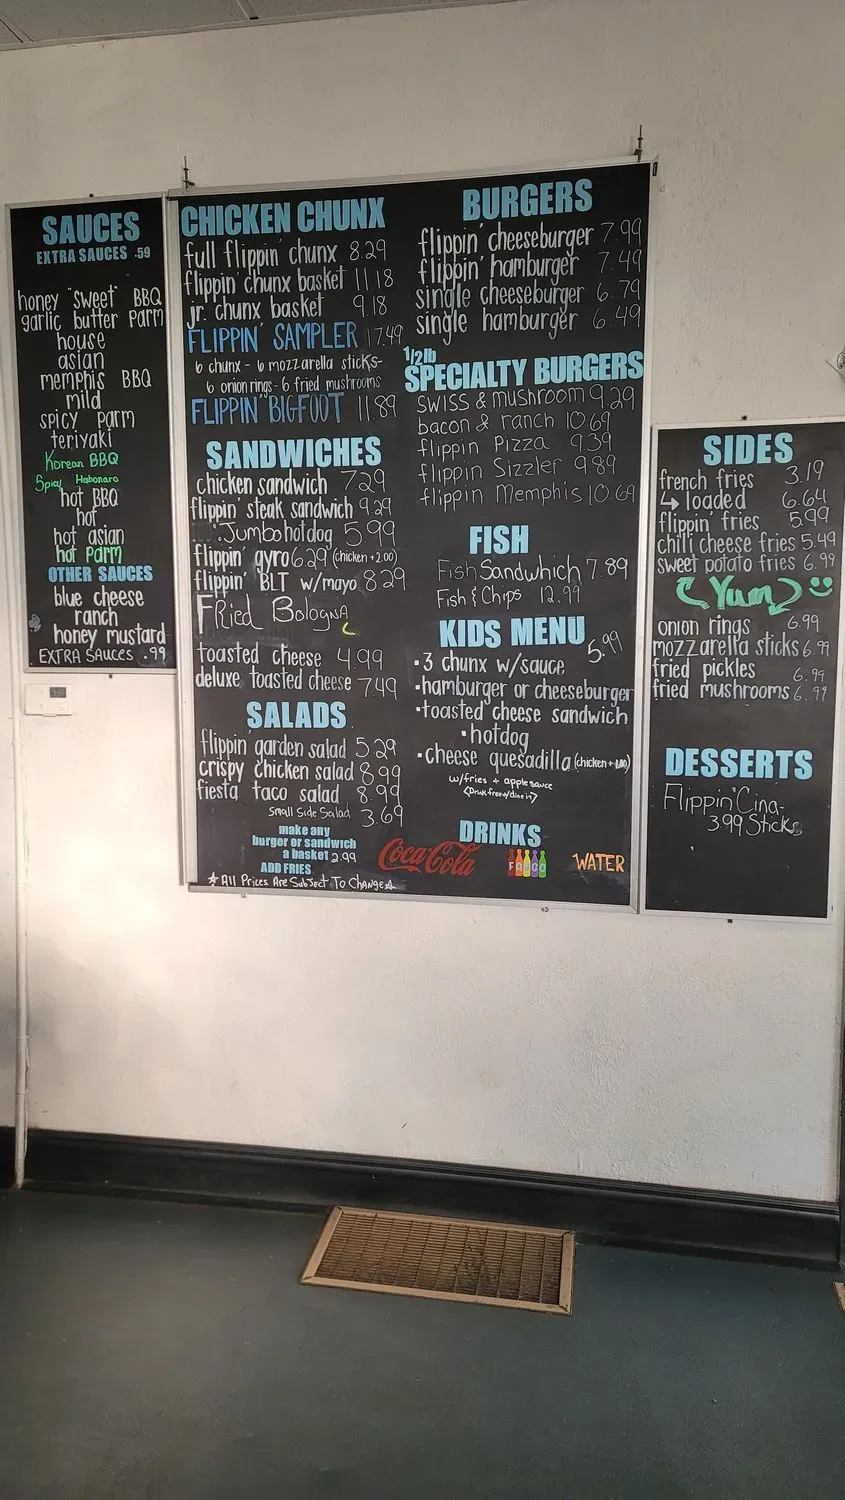 SAUCES
EXTRA SAUCES .59
honey "sweet" BBQ
garlic butter parm
house
asian
memphis BBQ
mild
spicy parm
teriyaki
Korean BBQ
Spicy Habanaro
hot BBQ
hot
hot asian
hot parm
OTHER SAUCES
blue cheese
ranch
honey mustard
EXTRA SAUCES .99
CHICKEN CHUNX
full flippin' chunx 8.29
flippin' chunx basket 11.18
jr. chunx basket 9.18
FLIPPIN' SAMPLER 17.49
6 chunx - 6 mozzarella sticks-
6 onion rings - 6 fried mushrooms
FLIPPIN' "BIGFOOT 11.89
SANDWICHES
chicken sandwich 7.29
flippin' steak sandwich 9.29
Jumbo hotdog 5.99
flippin' gyro 6.29 (chicken +2.00)
flippin' BLT w/mayo 8.29
Fried Bologna
toasted cheese 4.99
deluxe toasted cheese 7.49
SALADS
flippin' garden salad 5.29
crispy chicken salad 8.99
fiesta taco salad 8.99
Small Side Salad 3.69
make any
burger or sandwich
a basket 2.99
ADD FRIES
☆ All Prices Are Subject To Change ☆
BURGERS
flippin' cheeseburger 7.99
flippin' hamburger 7.49
single cheeseburger 6.79
single hamburger 6.49
1/2lb
SPECIALTY BURGERS
swiss & mushroom 9.29
bacon & ranch 10.69
flippin Pizza 9.39
flippin Sizzler 9.89
flippin Memphis 10.69
FISH
Fish Sandwhich 7.89
Fish & Chips 12.99
KIDS MENU 5.99
• 3 chunx w/sauce
• hamburger or cheeseburger
• toasted cheese sandwich
• hotdog
• cheese quesadilla (chicken + 1.00)
w/fries + applesauce
(Drink free w/dine in)
DRINKS
Coca-Cola
FAYGO
WATER
SIDES
french fries 3.19
↳ loaded 6.64
flippin' fries 5.99
chili cheese fries 5.49
sweet potato fries 6.99
Yum
onion rings 6.99
mozzarella sticks 6.99
fried pickles 6.99
fried mushrooms 6.99
DESSERTS
Flippin' Cina-
3.99 Sticks